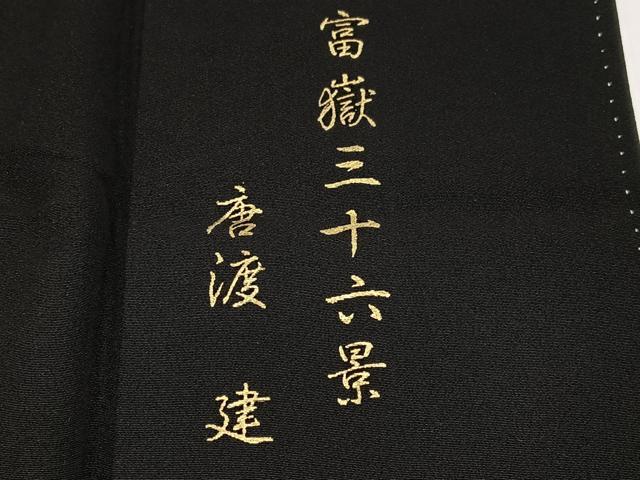 富嶽三十六景
唐渡 建